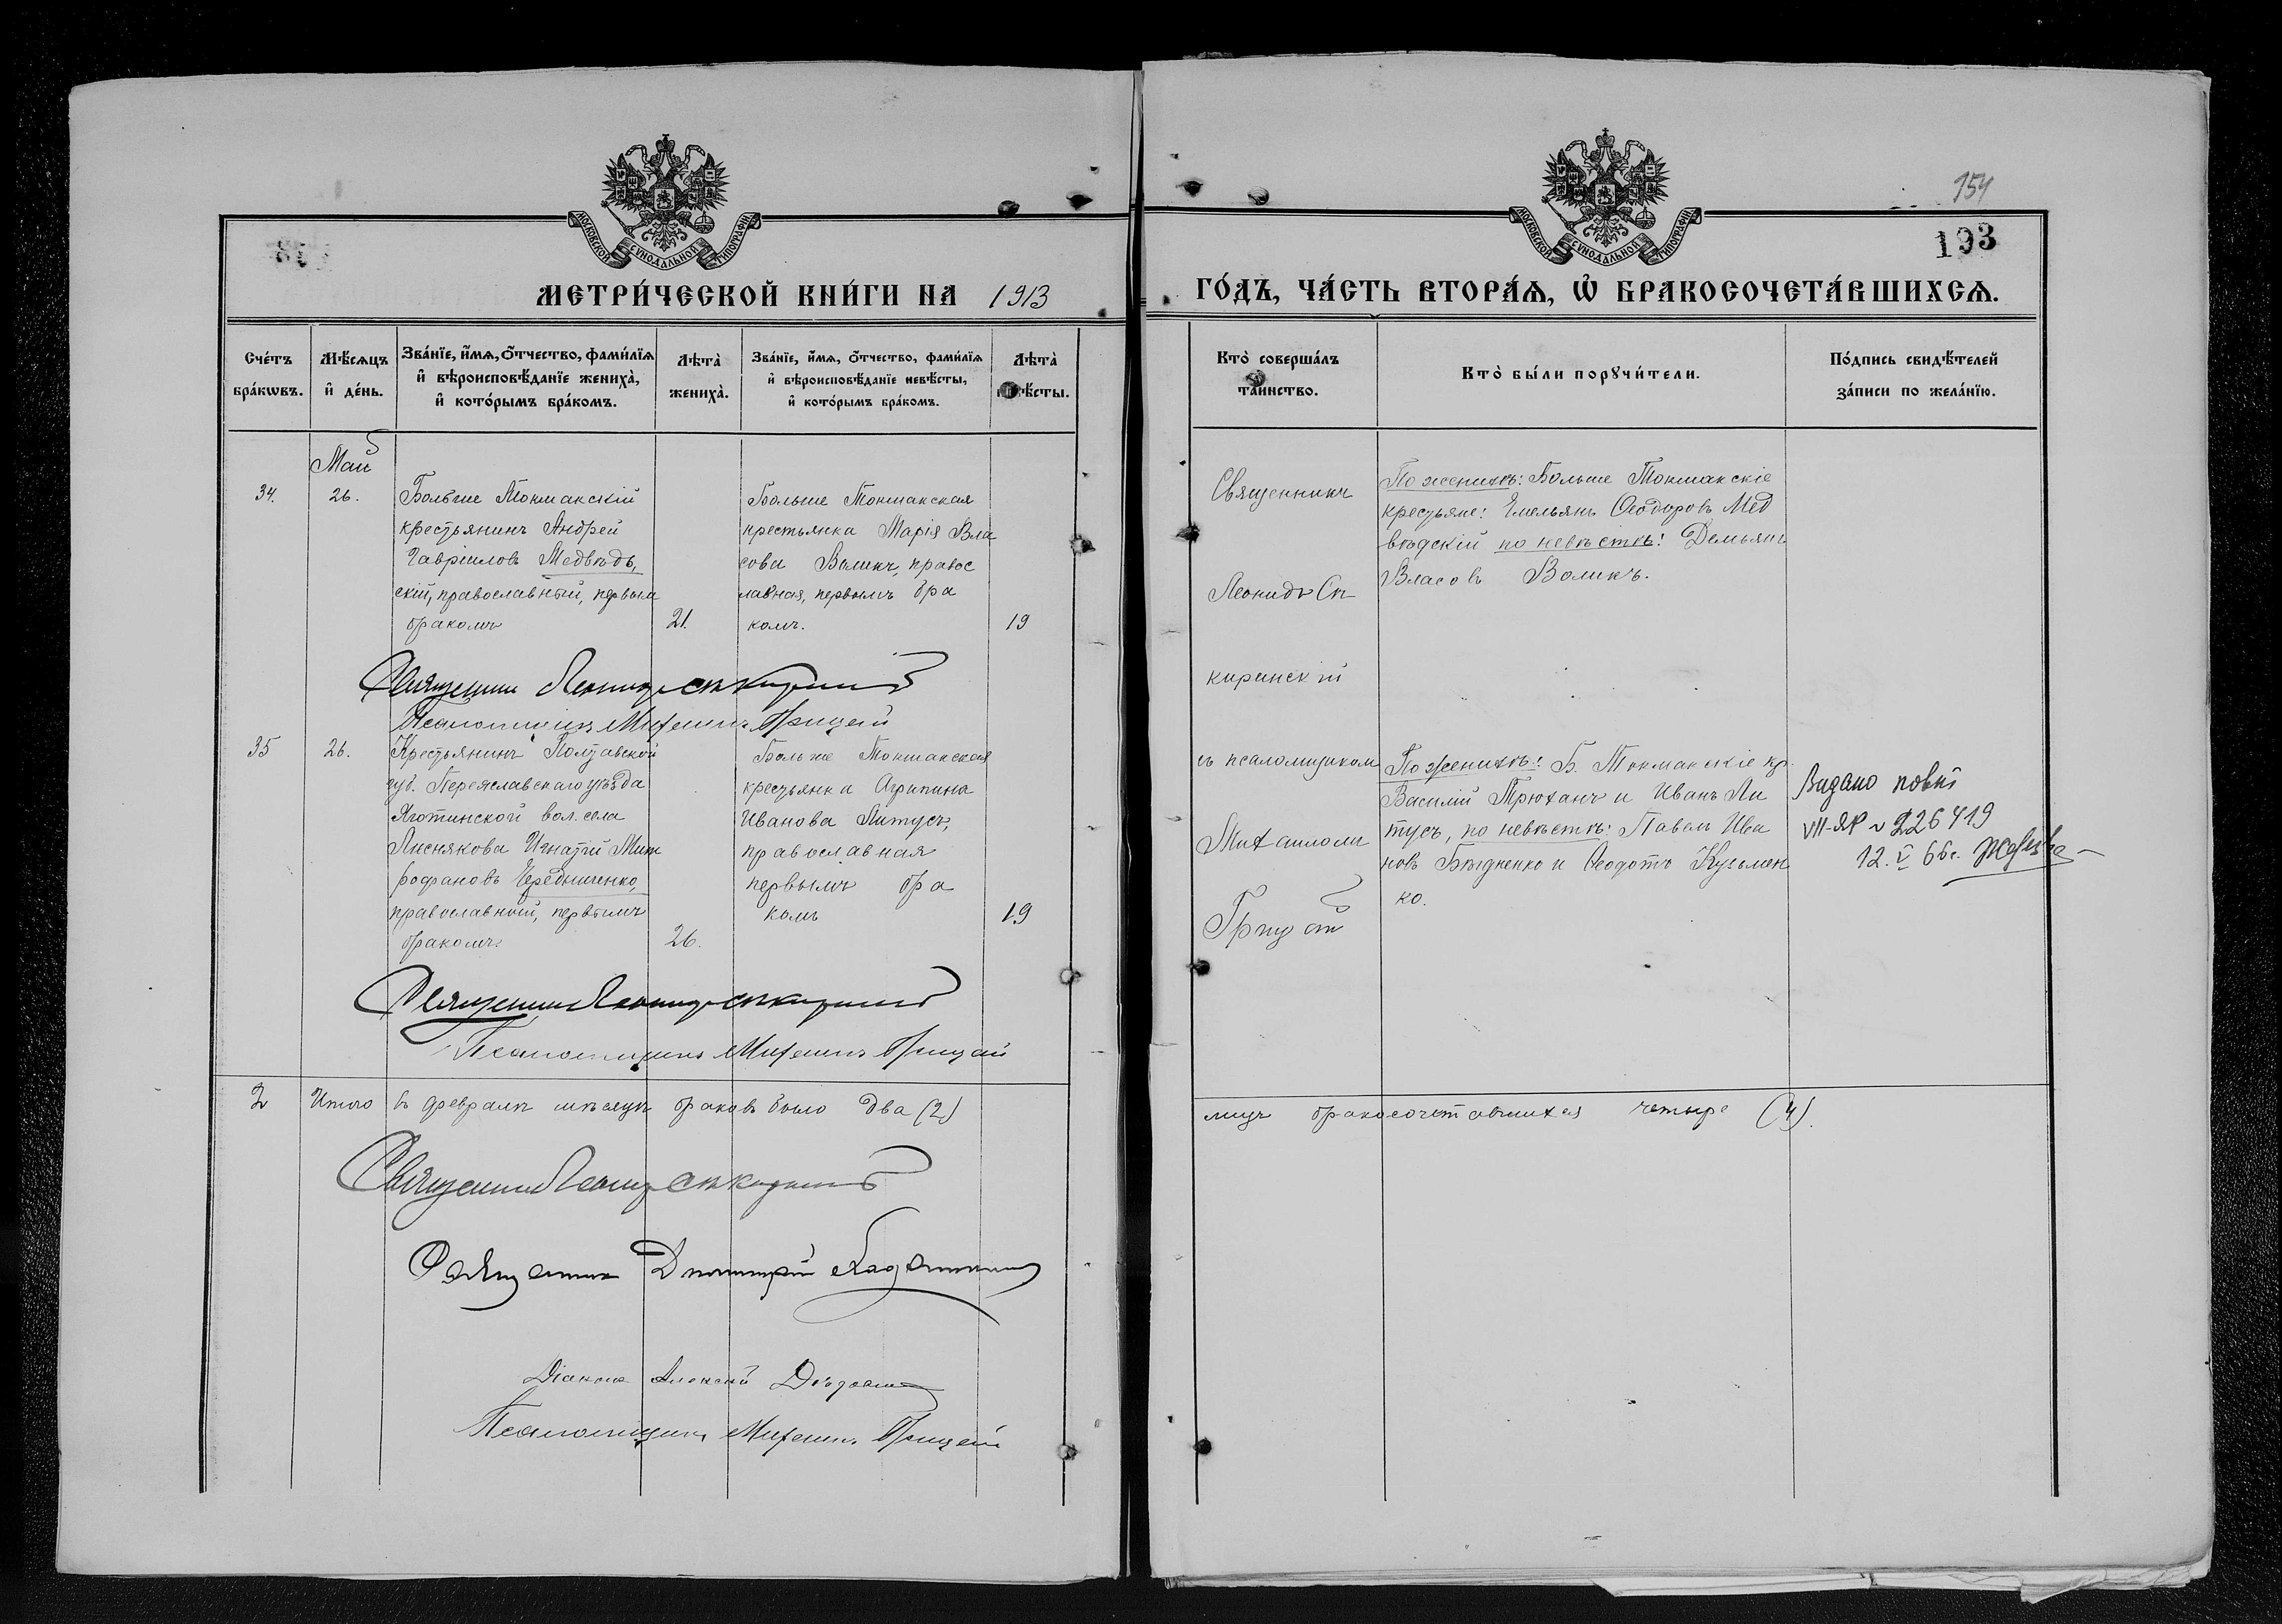 МОСКОВСКОЙ СѴНОДАЛЬНОЙ ТИПОГРАФІИ
МЕТРИ́ЧЕСКОЙ КНИ́ГИ НА 1913
Сче́тъ бра́кѡвъ.
Мѣ́сяцъ и҆ де́нь.
Зва́нїе, и҆́мѧ, ѻ҆́тчество, фами́лїѧ
и҆ вѣроисповѣ́данїе жениха̀,
и҆ кото́рымъ бра́комъ.
Лѣта̀ жениха̀.
Зва́нїе, и҆́мѧ, ѻ҆́тчество, фами́лїѧ
и҆ вѣроисповѣ́данїе невѣ́сты,
и҆ кото́рымъ бра́комъ.
Лѣта̀
Май
34. 26.
Больше Токмакскій
крестьянинъ Андрей
Гавріиловъ Медвѣд,
скій, православный, первымъ
бракомъ
21.
Больше Токмакская
крестьянка Марія Вла
сова Воликъ, правос
лавная, первымъ бра
комъ.
19
Священник Леонид Спкиринский
Псаломщикъ Михаилъ Грицай
35 26.
Крестьянинъ Полтавской
губ. Переяславскаго уѣзда
Яготинской вол. села
Лиснякова Игнатій Мит
рофановъ Чередниченко,
православный, первымъ
бракомъ.
26.
Больше Токмакская
крестьянка Агрипина
Иванова Литусъ,
православная
первымъ бра
комъ
19
Псаломщикъ Михаилъ Грицай
2 Итого въ февралѣ мѣсяцѣ браковъ было два (2)
Священник Дмитрій
Діаконъ Алексѣй
Псаломщикъ Михаилъ Грицай
154
193
МОСКОВСКОЙ СѴНОДАЛЬНОЙ ТИПОГРАФІИ
ГО́ДЪ, ЧА́СТЬ ВТОРА́Ѧ, Ѡ҆ БРАКОСОЧЕТА́ВШИХСѦ.
Кто̀ соверша́лъ
та́инство.
Кто̀ бы́ли порꙋчи́тели.
По́дпись свидѣ́телей
за́писи по жела́нїю.
Священникъ
Леонидъ Сп
киринскій
съ псаломщикомъ
Михаиломъ
Грицай
По женихѣ: Больше Токмакскіе
крестьяне: Емельянъ Ѳеодоровъ Мед
вѣдскій по невѣстѣ: Демьянъ
Власовъ Воликъ.
По женихѣ: Б. Токмакскіе кр.
Василій Трюханъ и Иванъ Ли
тусъ, по невѣстѣ: Павелъ Ива
новъ Бѣдненко и Ѳеодотъ Кузьмен
ко.
Видано повт
VII-ЯР № 226419
12. V 66г.
лицъ бракосочетавшихся четыре (4).